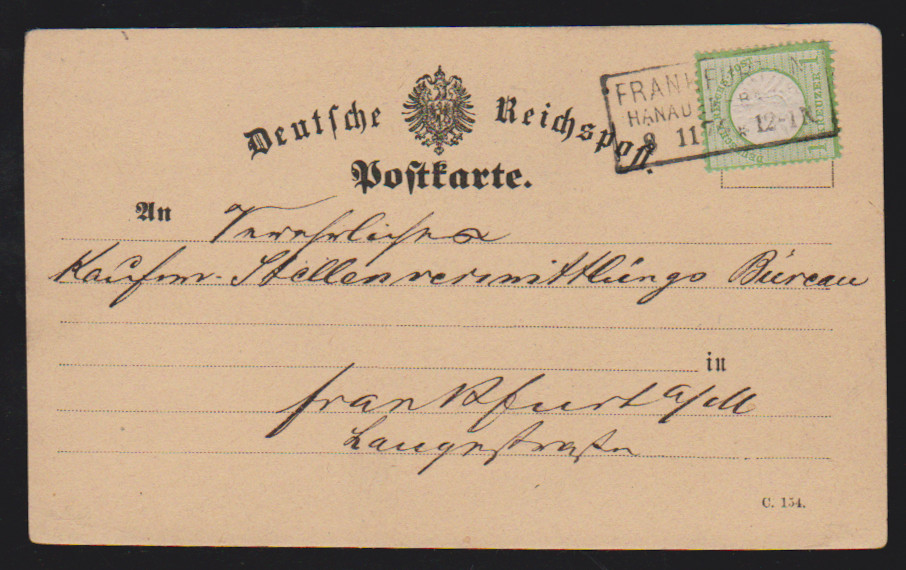 Deutsche Reichspost.
Postkarte.
FRANKFURT
HANAUER
8 11 * 12-1 N.
1 KREUZER 1
An
Kaufm. Stellenvermittlungs Büreau
in
Frankfurt a/M
Langestraße
C. 154.